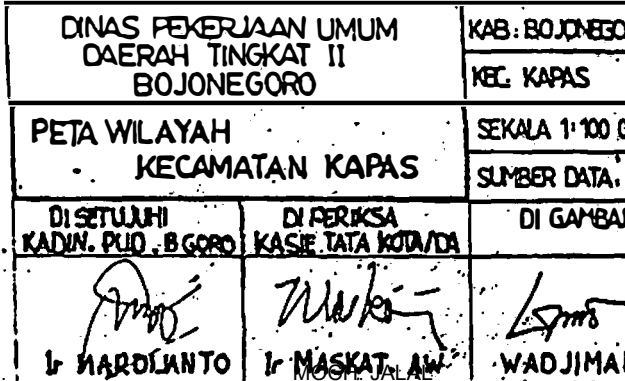 DINAS PEKERJAAN UMUM
DAERAH TINGKAT II
BOJONEGORO
KAB: BOJONEGO
KEC: KAPAS
PETA WILAYAH
KECAMATAN KAPAS
SEKALA 1:100
SUMBER DATA.
DI SETUJUHI
KADIN. PUD. BGORO
DI PERIKSA
KASIE TATA KOTA/DA
DI GAMBAR
Ir HARDIJANTO
Ir MASKAT. AW
MOCH. JALAL
WADJIMAN